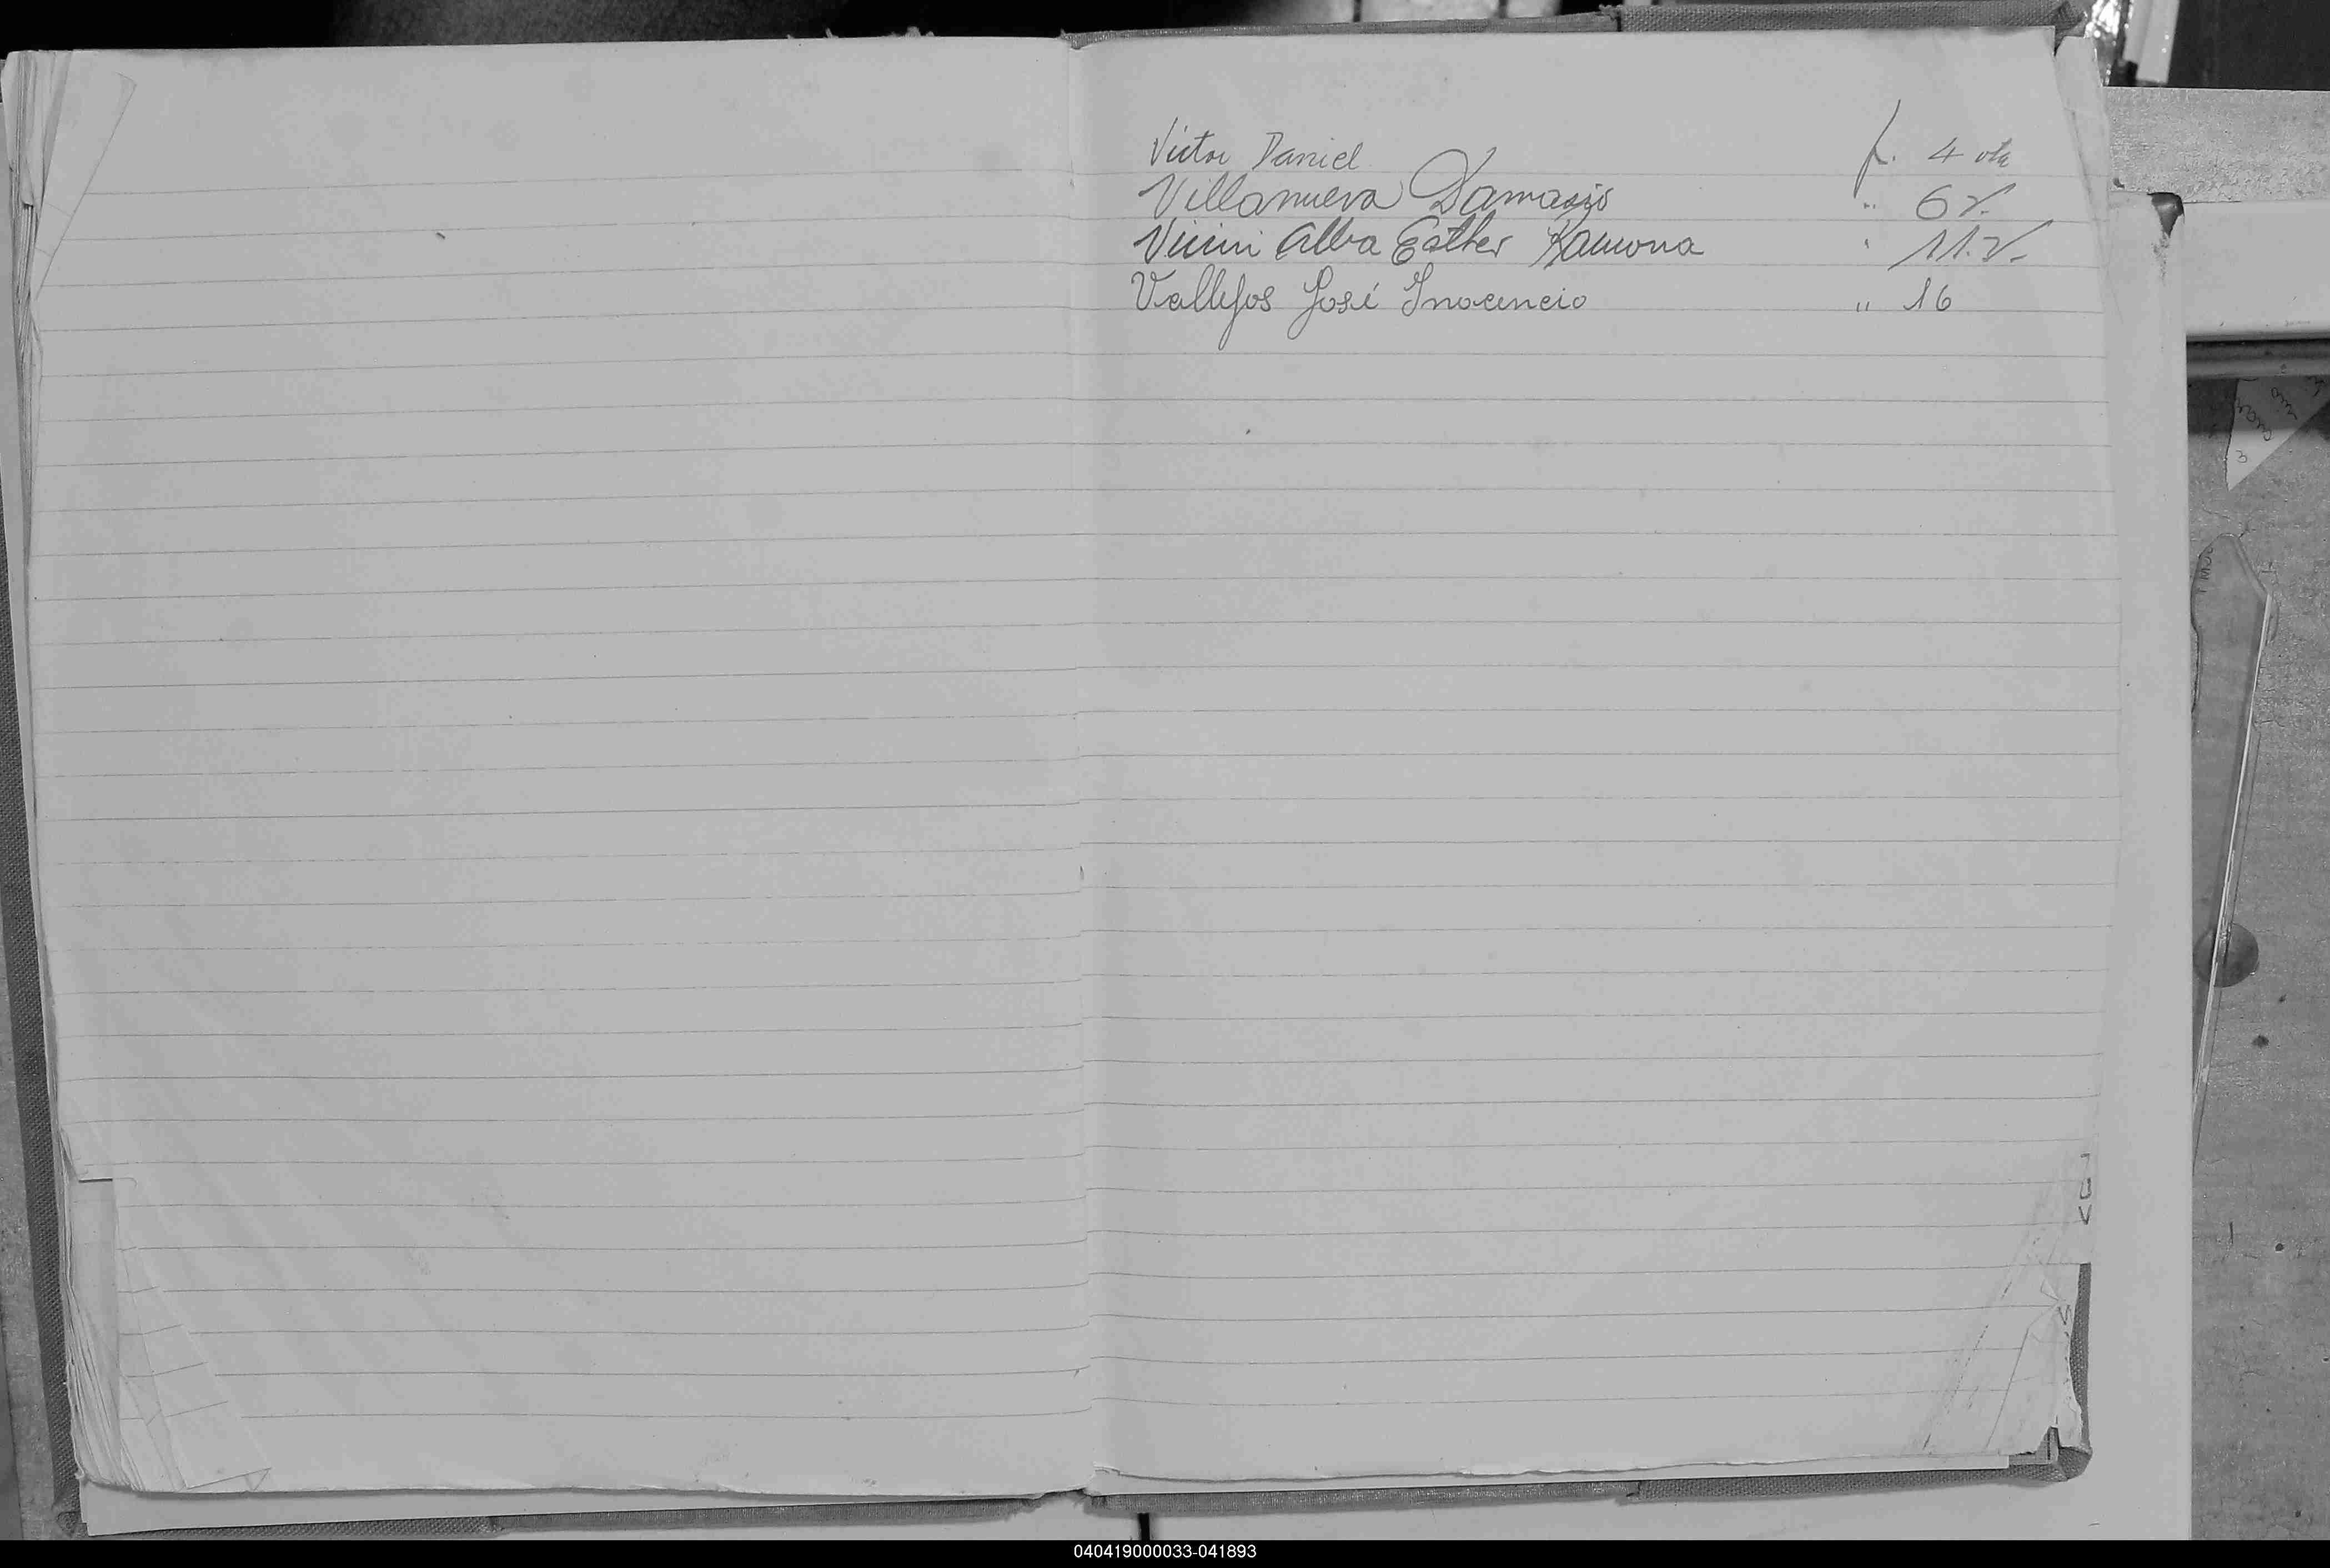 Victor Daniel f. 4 vta
Villanueva Damasio " 6 v.
Vicini Alba Esther Ramona " 11. v.
Vallejos José Inocencio " 16
040419000033-041893